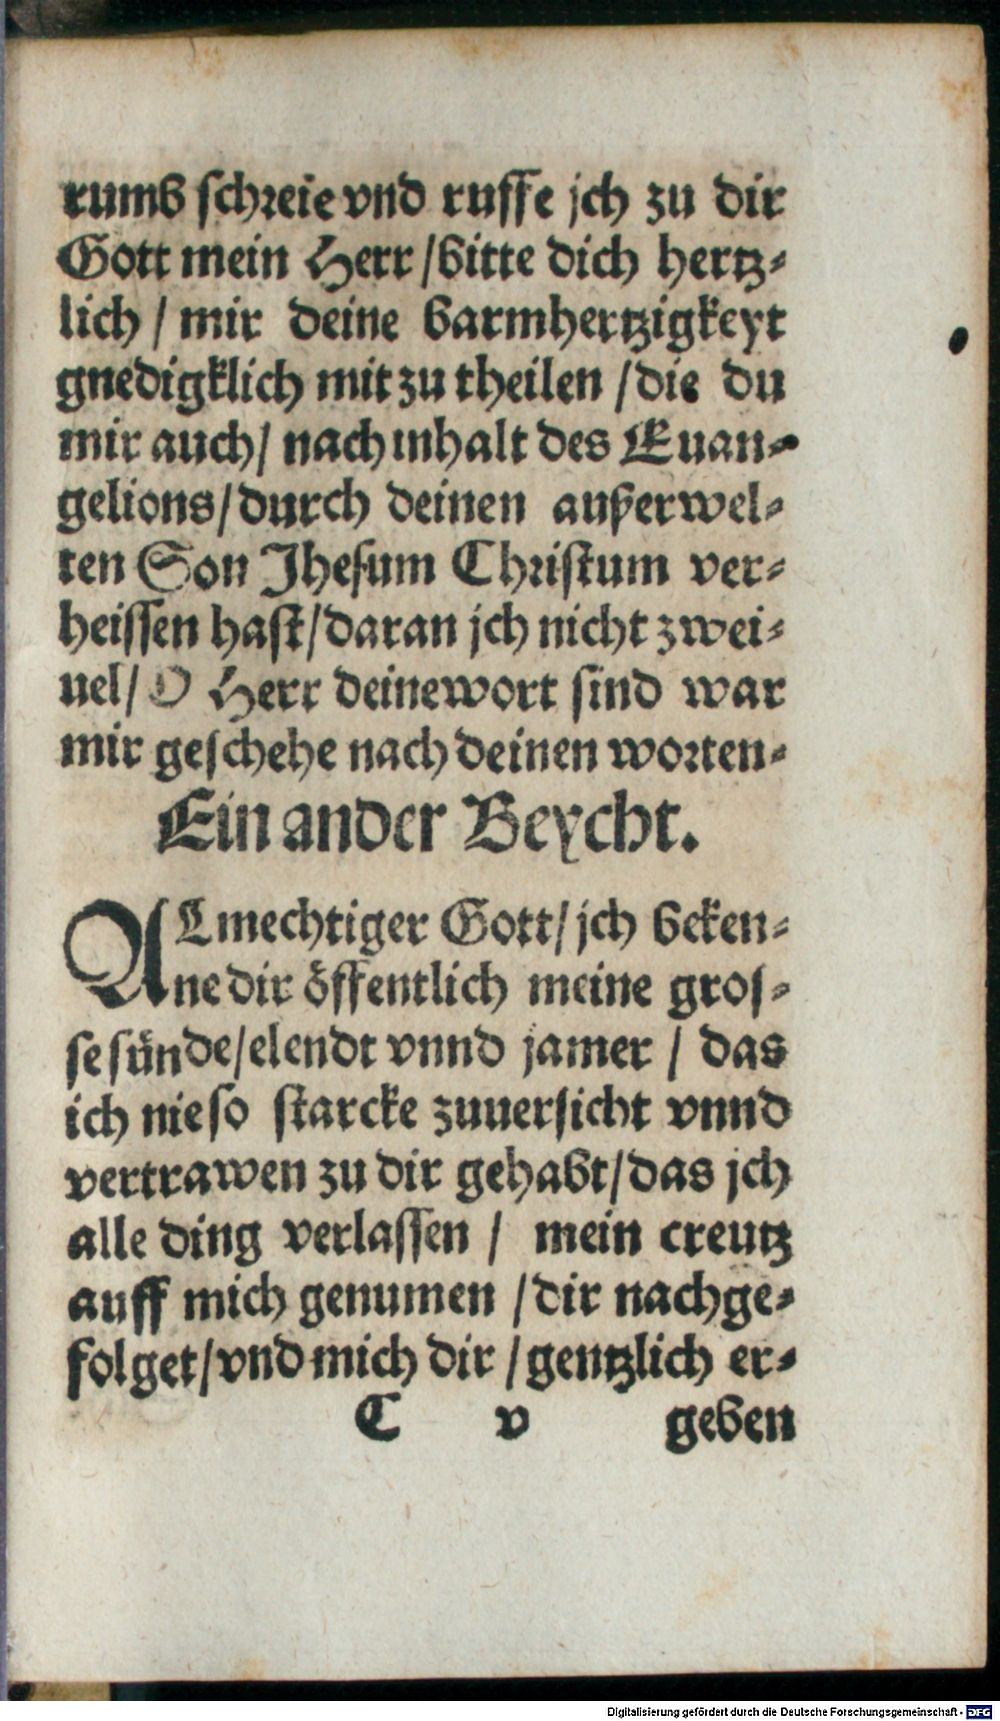 rumb schreie vnd ruffe jch zu dir
Gott mein Herr / bitte dich hertz⸗
lich / mir deine barmhertzigkeyt
gnedigklich mit zu theilen / die du
mir auch / nach inhalt des Euan⸗
gelions / durch deinen außerwel⸗
ten Son Jhesum Christum ver⸗
heissen hast / daran jch nicht zwei⸗
uel / O Herr deine wort sind war
mir geschehe nach deinen worten⸗
Ein ander Beycht.
ALmechtiger Gott / jch beken⸗
ne dir öffentlich meine gros⸗
se sünde / elendt vnnd jamer / das
ich nie so starcke zuuersicht vnnd
vertrawen zu dir gehabt / das jch
alle ding verlassen / mein creutz
auff mich genumen / dir nachge⸗
folget / vnd mich dir / gentzlich er⸗
C v geben
Digitalisierung gefördert durch die Deutsche Forschungsgemeinschaft - DFG